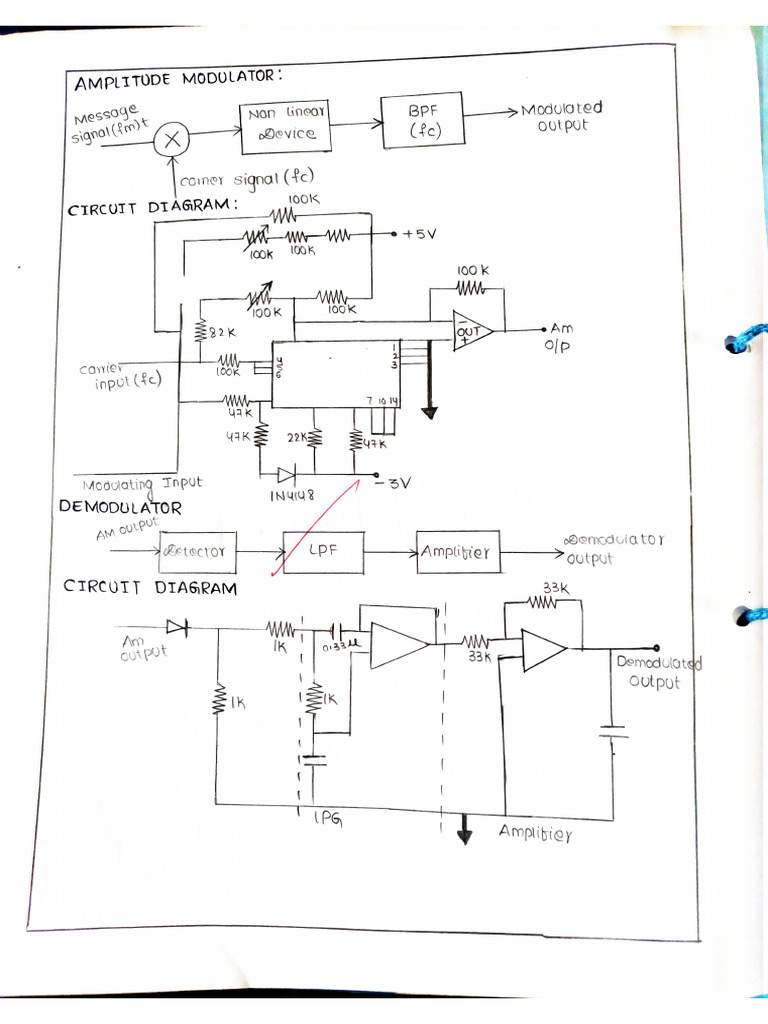 AMPLITUDE MODULATOR:
Message
signal(fm)t
X
Non linear
Device
BPF
(fc)
Modulated
output
carrier signal (fc)
CIRCUIT DIAGRAM:
100K
100K
100K
+5V
100K
100K
100K
82K
OUT
Am
O/P
Carrier
input (fc)
100K
4
6
1
2
3
7 10 14
47K
47K
22K
47K
1N4148
-3V
Modulating Input
DEMODULATOR
AM output
Detector
LPF
Amplifier
Demodulator
output
CIRCUIT DIAGRAM
Am
output
1K
0.33µ
33K
33K
1K
1K
Demodulated
output
LPG
Amplifier